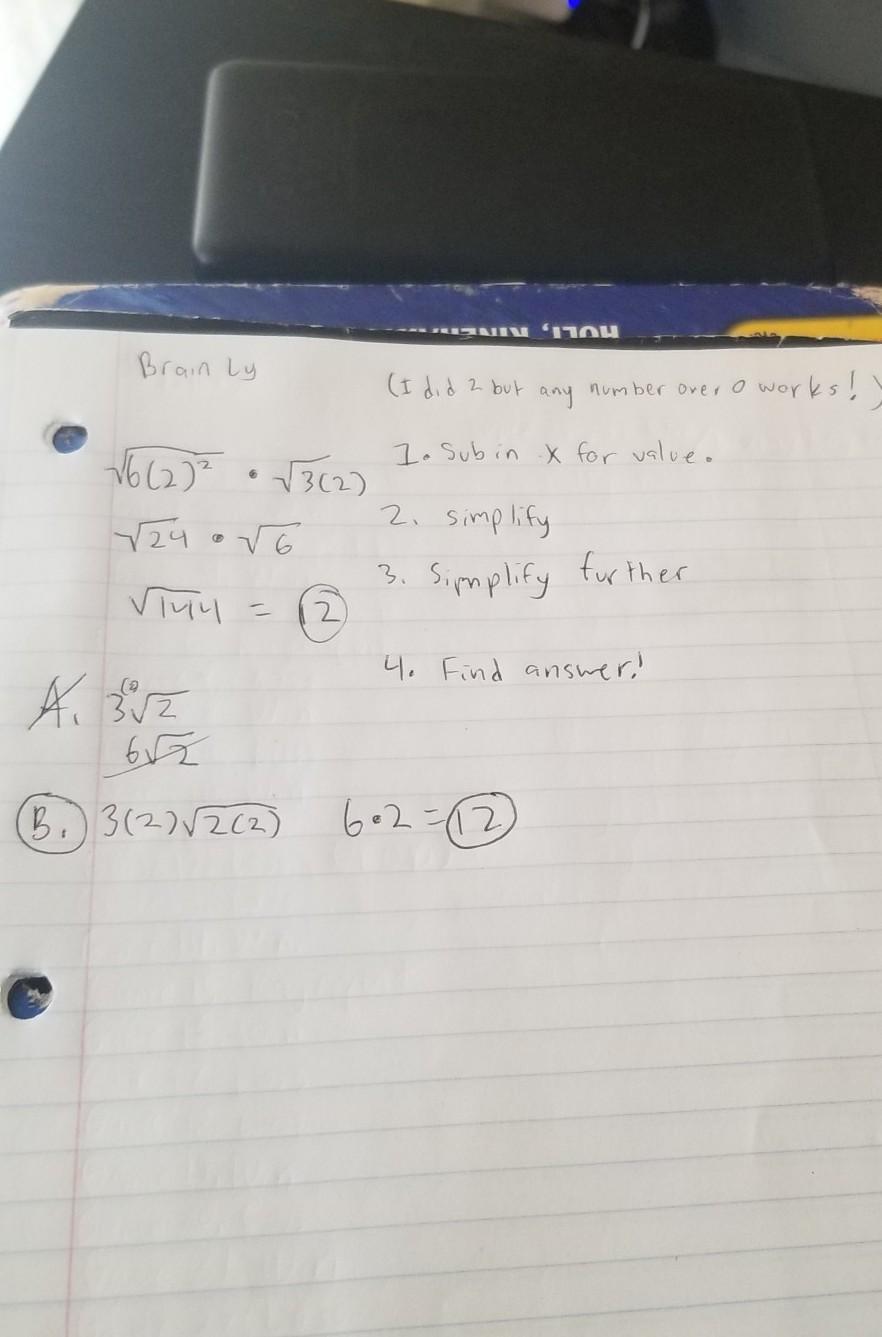 HOLT, RINEH
Brainly
(I did 2 but any number over 0 works!)
√6(2)² • √3(2)
1. Sub in x for value.
√24 • √6
2. simplify
3. Simplify further
√144 = 12
4. Find answer!
A. 3√2
6√2
B. 3(2)√2(2) 6•2=12